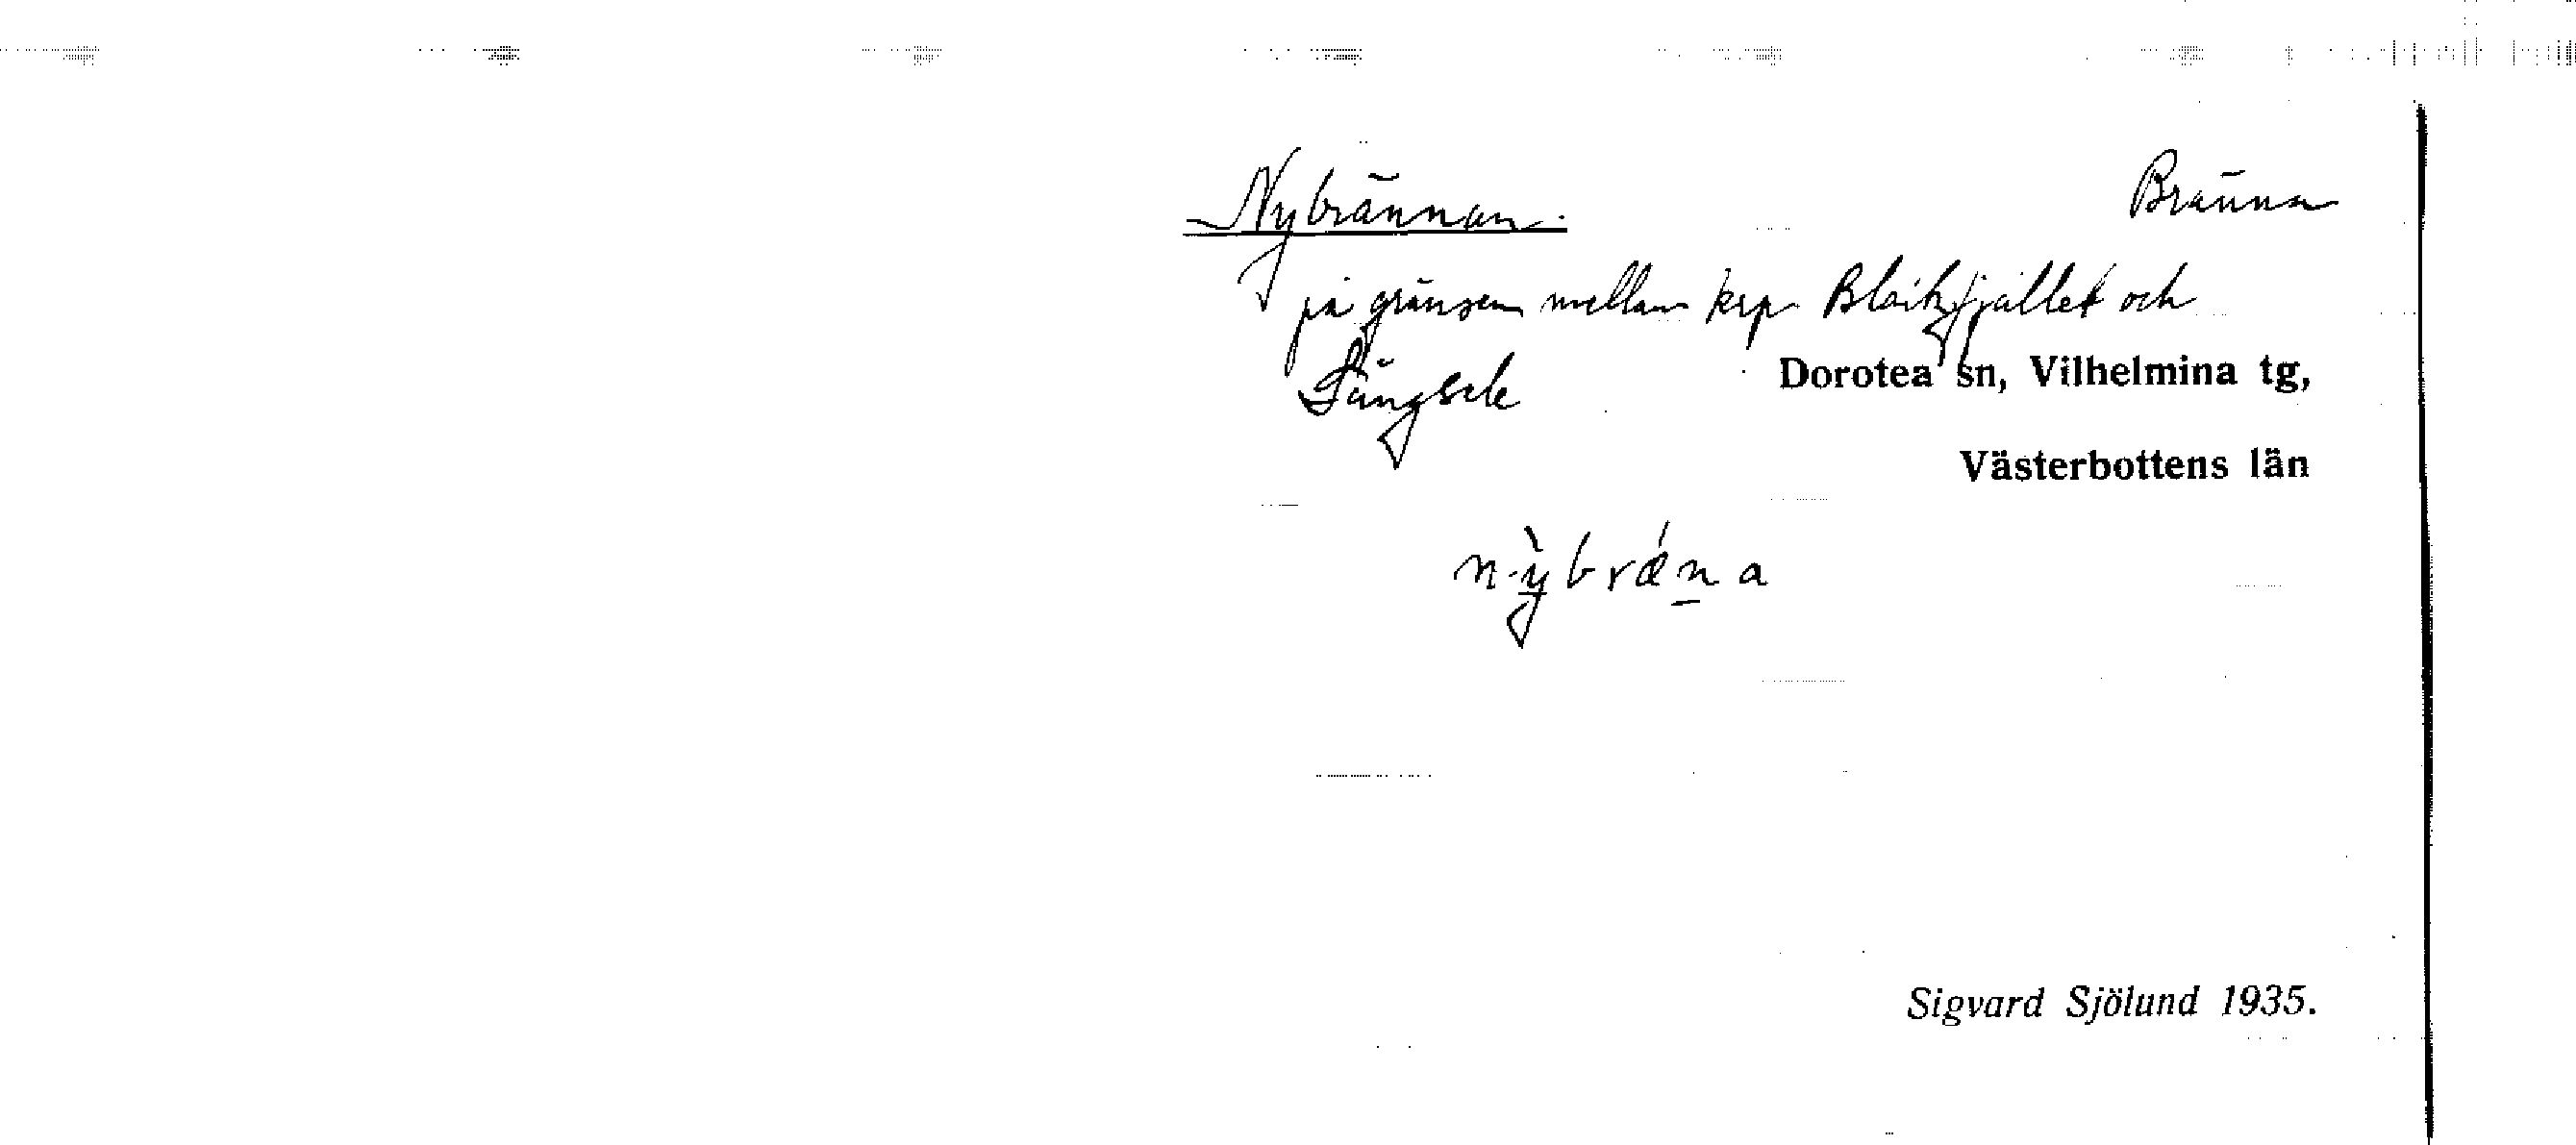 Nybrännan. Bränna
på gränsen mellan krp Blaikfjället och
Långsele
Dorotea sn, Vilhelmina tg,
Västerbottens län
nỳbrǽna
Sigvard Sjölund 1935.